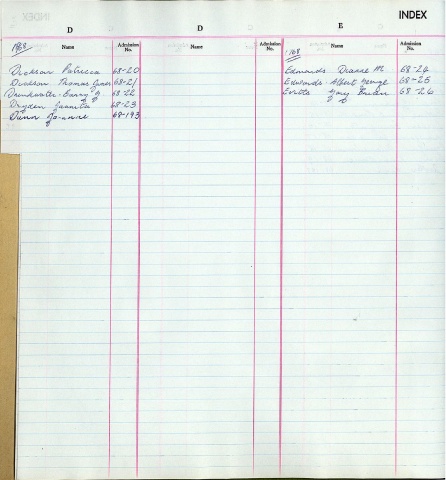 INDEX
D D E
Name Admission No. Name Admission No. Name Admission No.
1968 1968
Dickson Patricia 68-20
Dickson Thomas James 68-21
Drinkwater Barry 68-22
Dryden Juanita 68-23
Dunn Joanne 68-193
Edmonds Dianne M 68-24
Edwards Albert George 68-25
Evitts Gary Brian 68-26